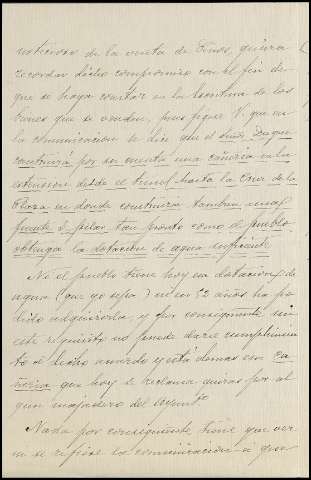 noticiosos de la venta de Einos, quiera
recordar dicho compromiso con el fin de
que se haga constar en la escritura de los
bienes que se venden, pues fijese V. que en
la comunicación se dice que el Señor Duque
construirá por su cuenta una cañería en la
extensión desde el tunel hasta la Cruz de la
Plaza en donde construirá tambien una
fuente ó pilar, tan pronto como el pueblo
obtenga la dotación de agua suficiente
Ni el pueblo tiene hoy esa dotación de
agua (que yo sepa) ni en 12 años ha po
dido adquirirla, y por consiguiente sin
este requisito no puede darse cumplimien
to á dicho acuerdo y está demas esa ca
ñería que hoy se reclama quizas por al
gun majadero del asunto
Nada por consiguiente tiene que ver
ni se refiere la comunicación á que